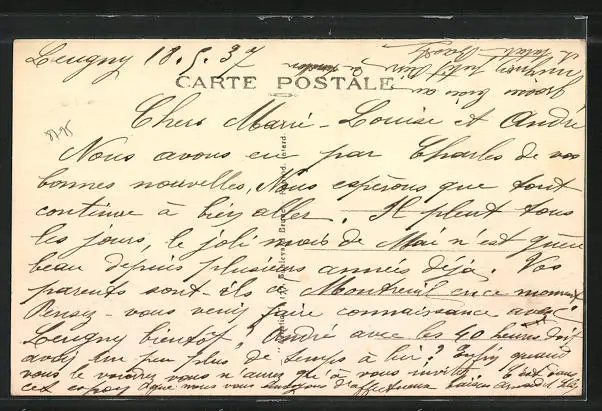 Leugny 18.5.37
CARTE POSTALE
Chers Marie-Louise et André
Nous avons eu par Charles de vos
bonnes nouvelles. Nous espérons que tout
continue à bien aller. Il pleut tous
les jours, le joli mois de Mai n'est guère
beau depuis plusieurs années déjà. Vos
parents sont-ils à Montreuil en ce moment
Pensez-vous venir faire connaissance avec
Leugny bientôt? André avec les 40 heures doit
avoir un peu plus de temps à lui? Enfin quand
vous le voudrez vous n'aurez qu'à vous inviter. C'est dans
cet espoir que nous vous envoyons d'affectueux baisers